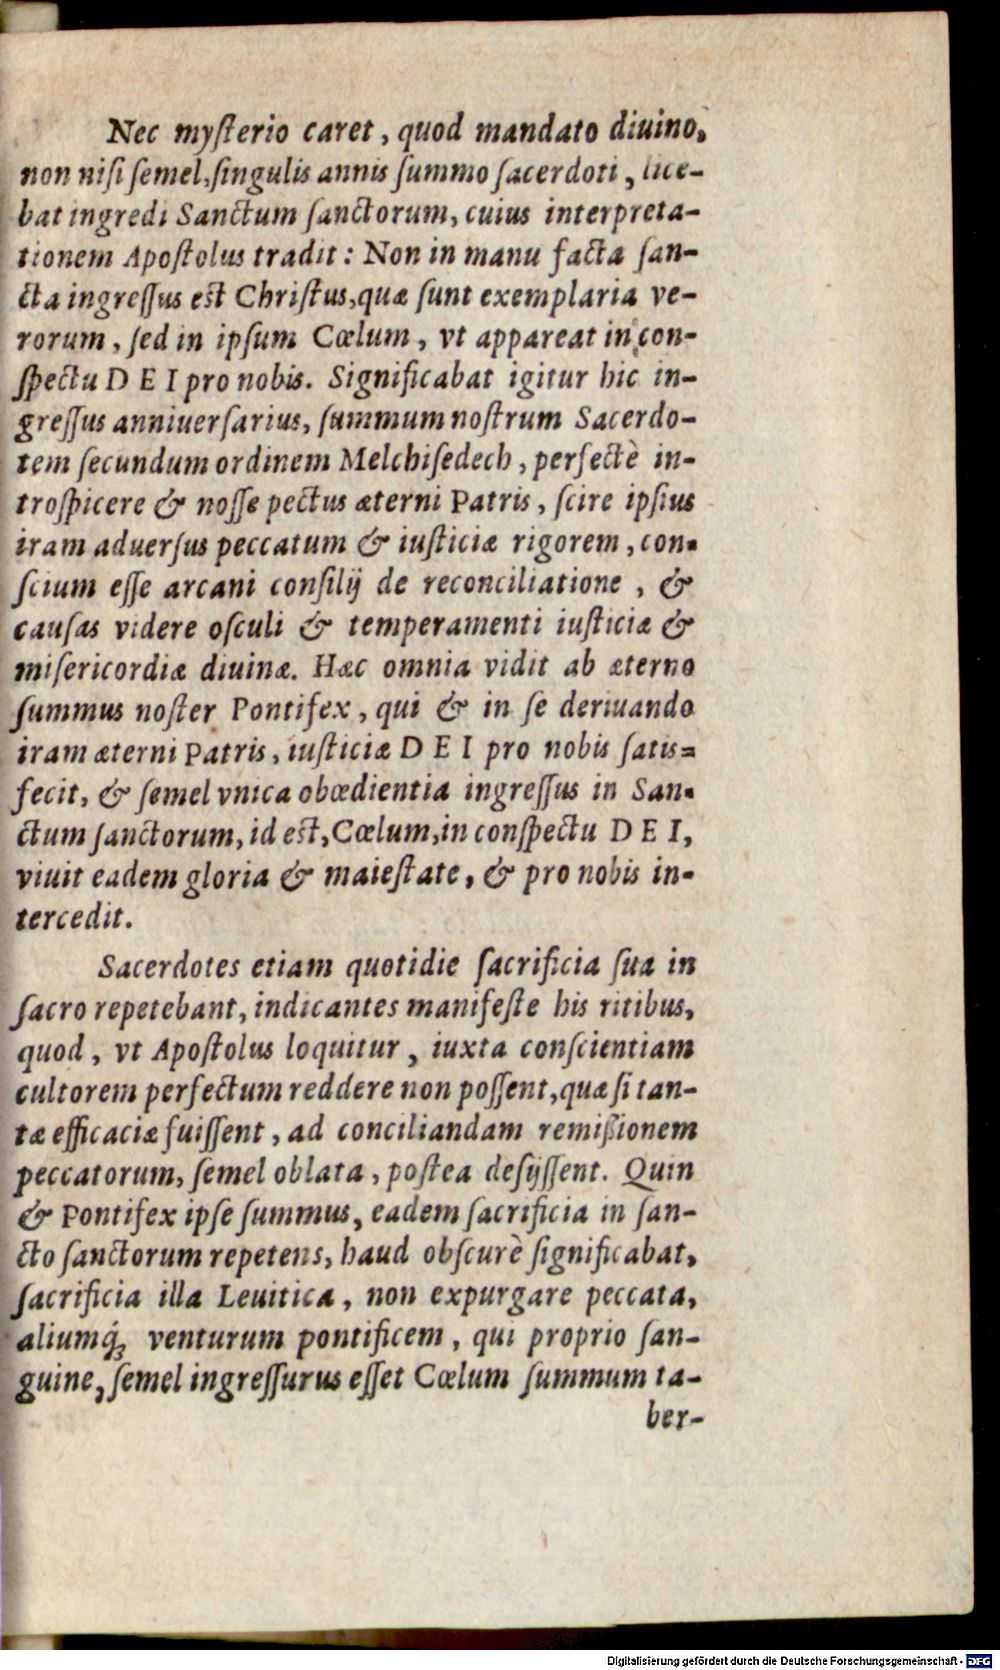 Nec myſterio caret, quod mandato diuino,
non niſi ſemel, ſingulis annis ſummo ſacerdoti, lice-
bat ingredi Sanctum ſanctorum, cuius interpreta-
tionem Apoſtolus tradit: Non in manu facta ſan-
cta ingreſſus eſt Chriſtus, quæ ſunt exemplaria ve-
rorum, ſed in ipſum Cœlum, vt appareat in con-
ſpectu D E I pro nobis. Significabat igitur hic in-
greſſus anniuerſarius, ſummum noſtrum Sacerdo-
tem ſecundum ordinem Melchiſedech, perfectè in-
troſpicere & noſſe pectus æterni Patris, ſcire ipſius
iram aduerſus peccatum & iuſticiæ rigorem, con-
ſcium eſſe arcani conſilij de reconciliatione, &
cauſas videre oſculi & temperamenti iuſticiæ &
miſericordiæ diuinæ. Hæc omnia vidit ab æterno
ſummus noſter Pontifex, qui & in ſe deriuando
iram æterni Patris, iuſticiæ D E I pro nobis ſatis-
fecit, & ſemel vnica obœdientia ingreſſus in San-
ctum ſanctorum, id eſt, Cœlum, in conſpectu D E I,
viuit eadem gloria & maieſtate, & pro nobis in-
tercedit.
Sacerdotes etiam quotidie ſacrificia ſua in
ſacro repetebant, indicantes manifeſte his ritibus,
quod, vt Apoſtolus loquitur, iuxta conſcientiam
cultorem perfectum reddere non poſſent, quæ ſi tan-
tæ efficaciæ fuiſſent, ad conciliandam remißionem
peccatorum, ſemel oblata, poſtea deſijſſent. Quin
& Pontifex ipſe ſummus, eadem ſacrificia in ſan-
cto ſanctorum repetens, haud obſcurè ſignificabat,
ſacrificia illa Leuitica, non expurgare peccata,
aliumq́ꝫ venturum pontificem, qui proprio ſan-
guine, ſemel ingreſſurus eſſet Cœlum ſummum ta-
ber-
Digitalisierung gefördert durch die Deutsche Forschungsgemeinschaft - DFG